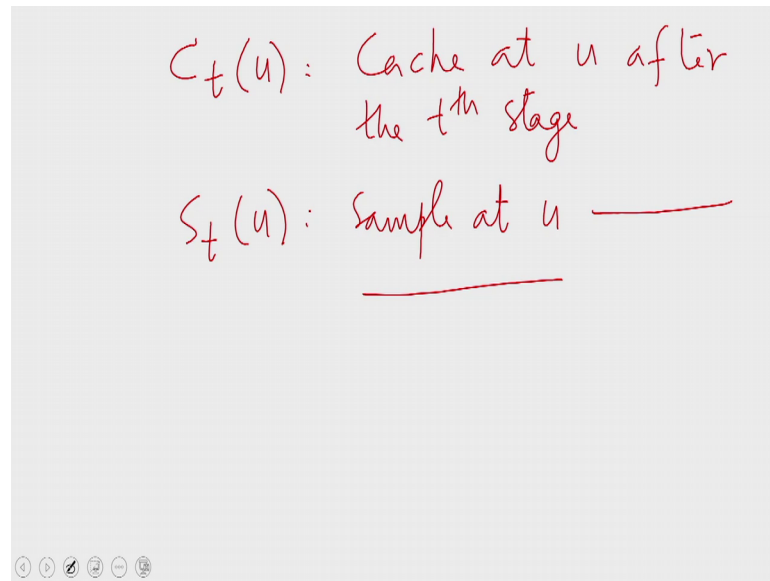 C_t(u): Cache at u after
the t^th stage
S_t(u): Sample at u